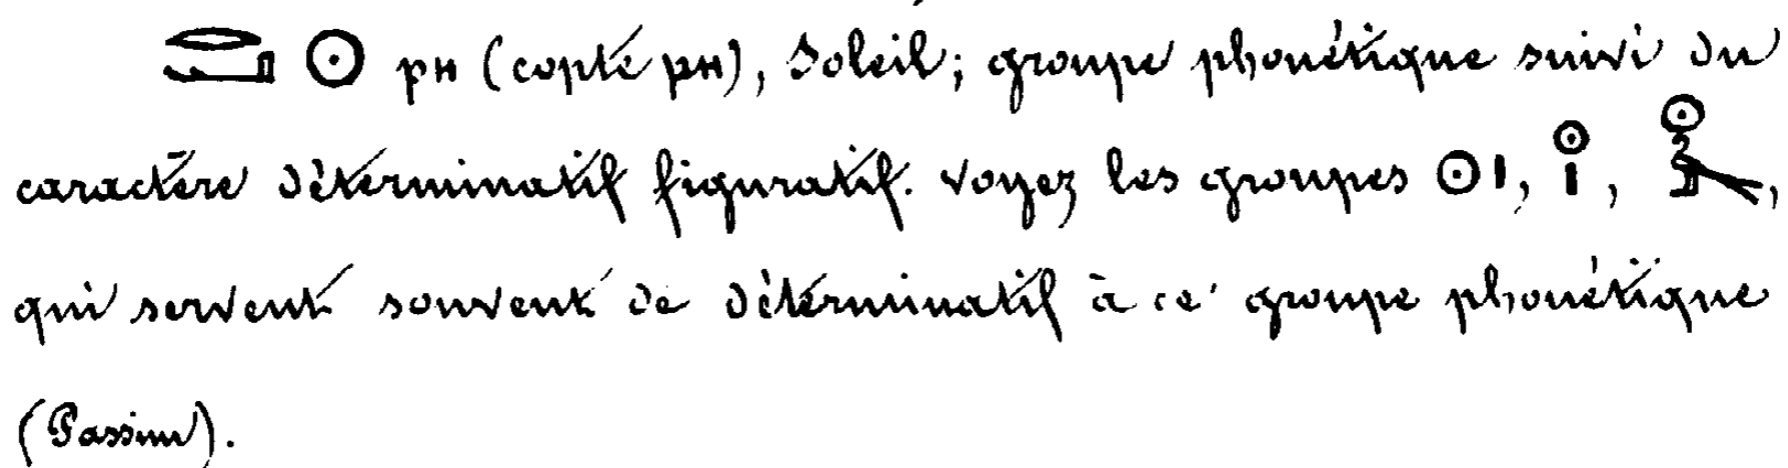 𓂋𓂝 𓇳 ⲣⲏ (copte ⲣⲏ), Soleil; groupe phonétique suivi du
caractère déterminatif figuratif. Voyez les groupes 𓇳𓏤, 𓇳𓏤, ,
qui servent souvent de déterminatif à ce groupe phonétique
(Passim).